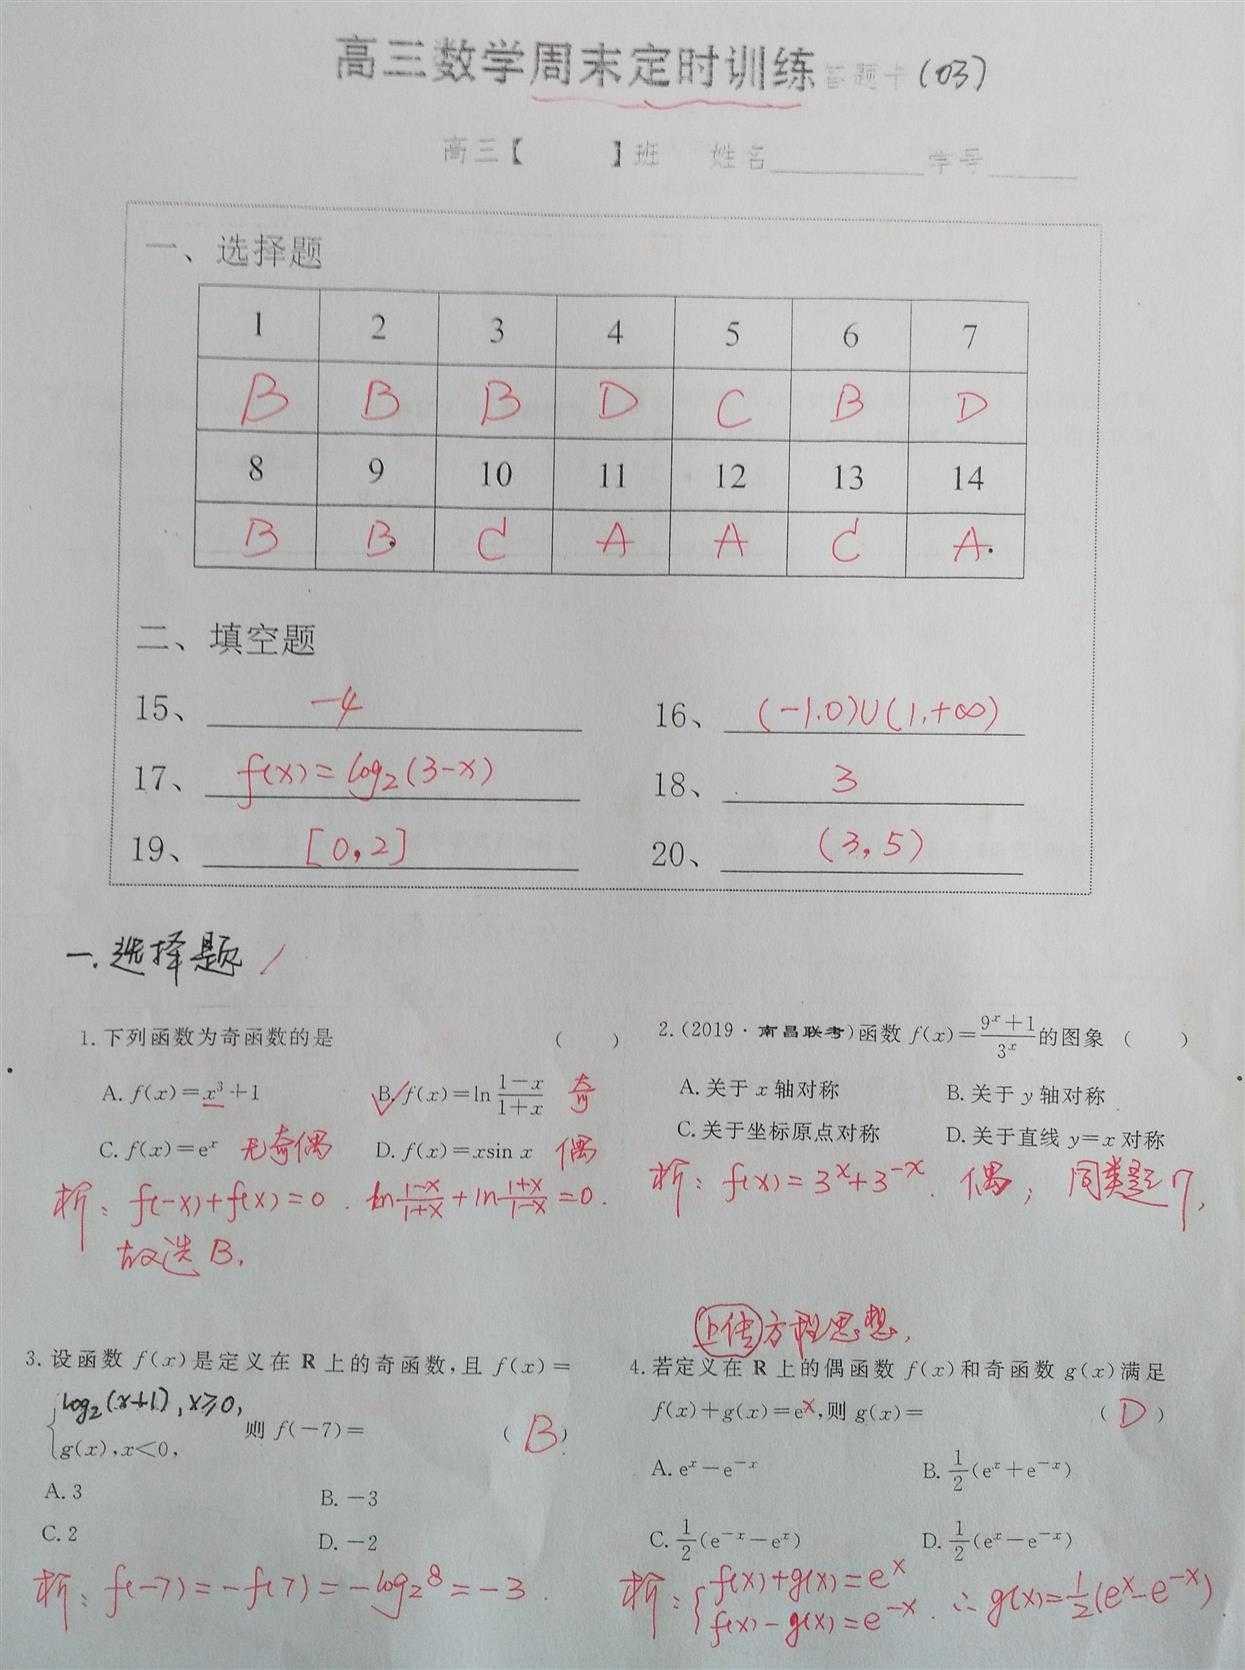 高三数学周末定时训练答题卡(03)
高三【 】班 姓名 学号
一、选择题
1 2 3 4 5 6 7
B B B D C B D
8 9 10 11 12 13 14
B B C A A C A
二、填空题
15、 -4 16、 (-1,0)∪(1,+∞)
17、 f(x)=log₂(3-x) 18、 3
19、 [0,2] 20、 (3,5)
一.选择题
1.下列函数为奇函数的是 ( )
A. f(x)=x³+1 B. f(x)=ln (1-x)/(1+x) 奇
C. f(x)=eˣ 无奇偶 D. f(x)=xsin x 偶
析: f(-x)+f(x)=0. ln (1-x)/(1+x) + ln (1+x)/(1-x) =0.
故选B.
2.(2019·南昌联考)函数 f(x)=(9ˣ+1)/3ˣ 的图象 ( )
A.关于 x 轴对称 B.关于 y 轴对称
C.关于坐标原点对称 D.关于直线 y=x 对称
析: f(x)=3ˣ+3⁻ˣ. 偶; 同类题7.
3.设函数 f(x)是定义在 R 上的奇函数,且 f(x)=
{log₂(x+1),x≥0,
g(x),x<0, 则 f(-7)= ( B )
A. 3 B. -3
C. 2 D. -2
析: f(-7)=-f(7)=-log₂8=-3.
上传 方程思想.
4.若定义在 R 上的偶函数 f(x)和奇函数 g(x)满足
f(x)+g(x)=eˣ,则 g(x)= ( D )
A. eˣ-e⁻ˣ B. 1/2(eˣ+e⁻ˣ)
C. 1/2(e⁻ˣ-eˣ) D. 1/2(eˣ-e⁻ˣ)
析: {f(x)+g(x)=eˣ
f(x)-g(x)=e⁻ˣ. ∴g(x)=1/2(eˣ-e⁻ˣ)